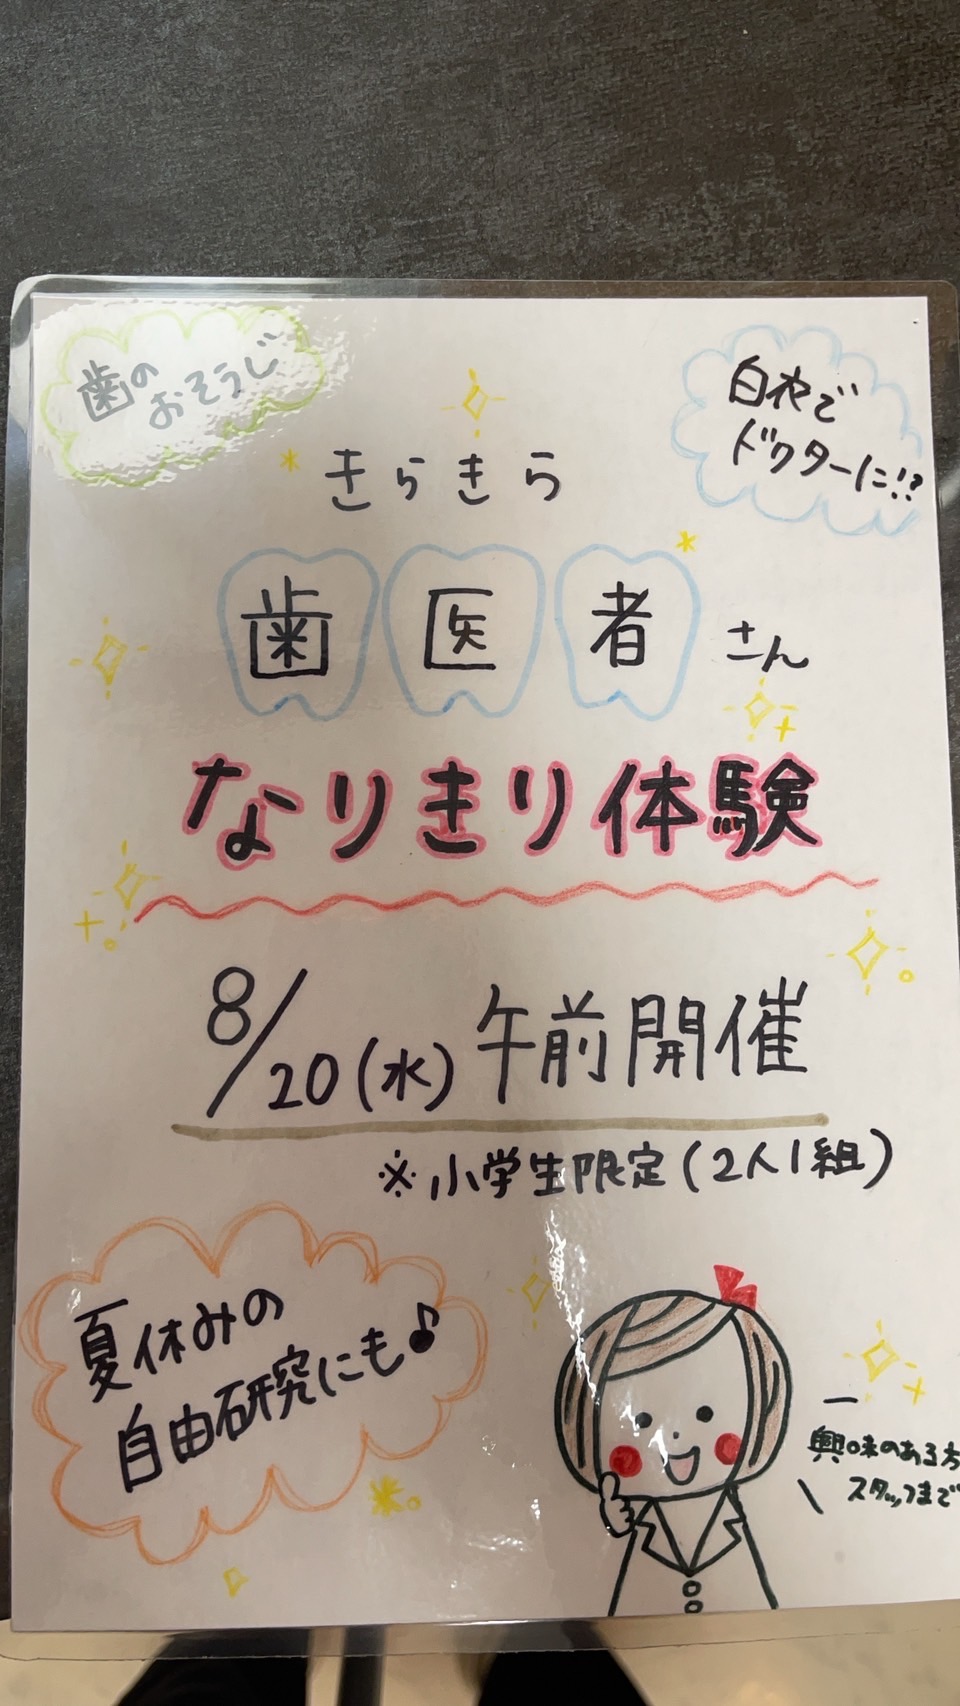 歯の
おそうじ
白衣で
ドクターに!?
きらきら
歯医者さん
なりきり体験
8/20(水)午前開催
※小学生限定(2人1組)
夏休みの
自由研究にも♪
興味のある方
スタッフまで